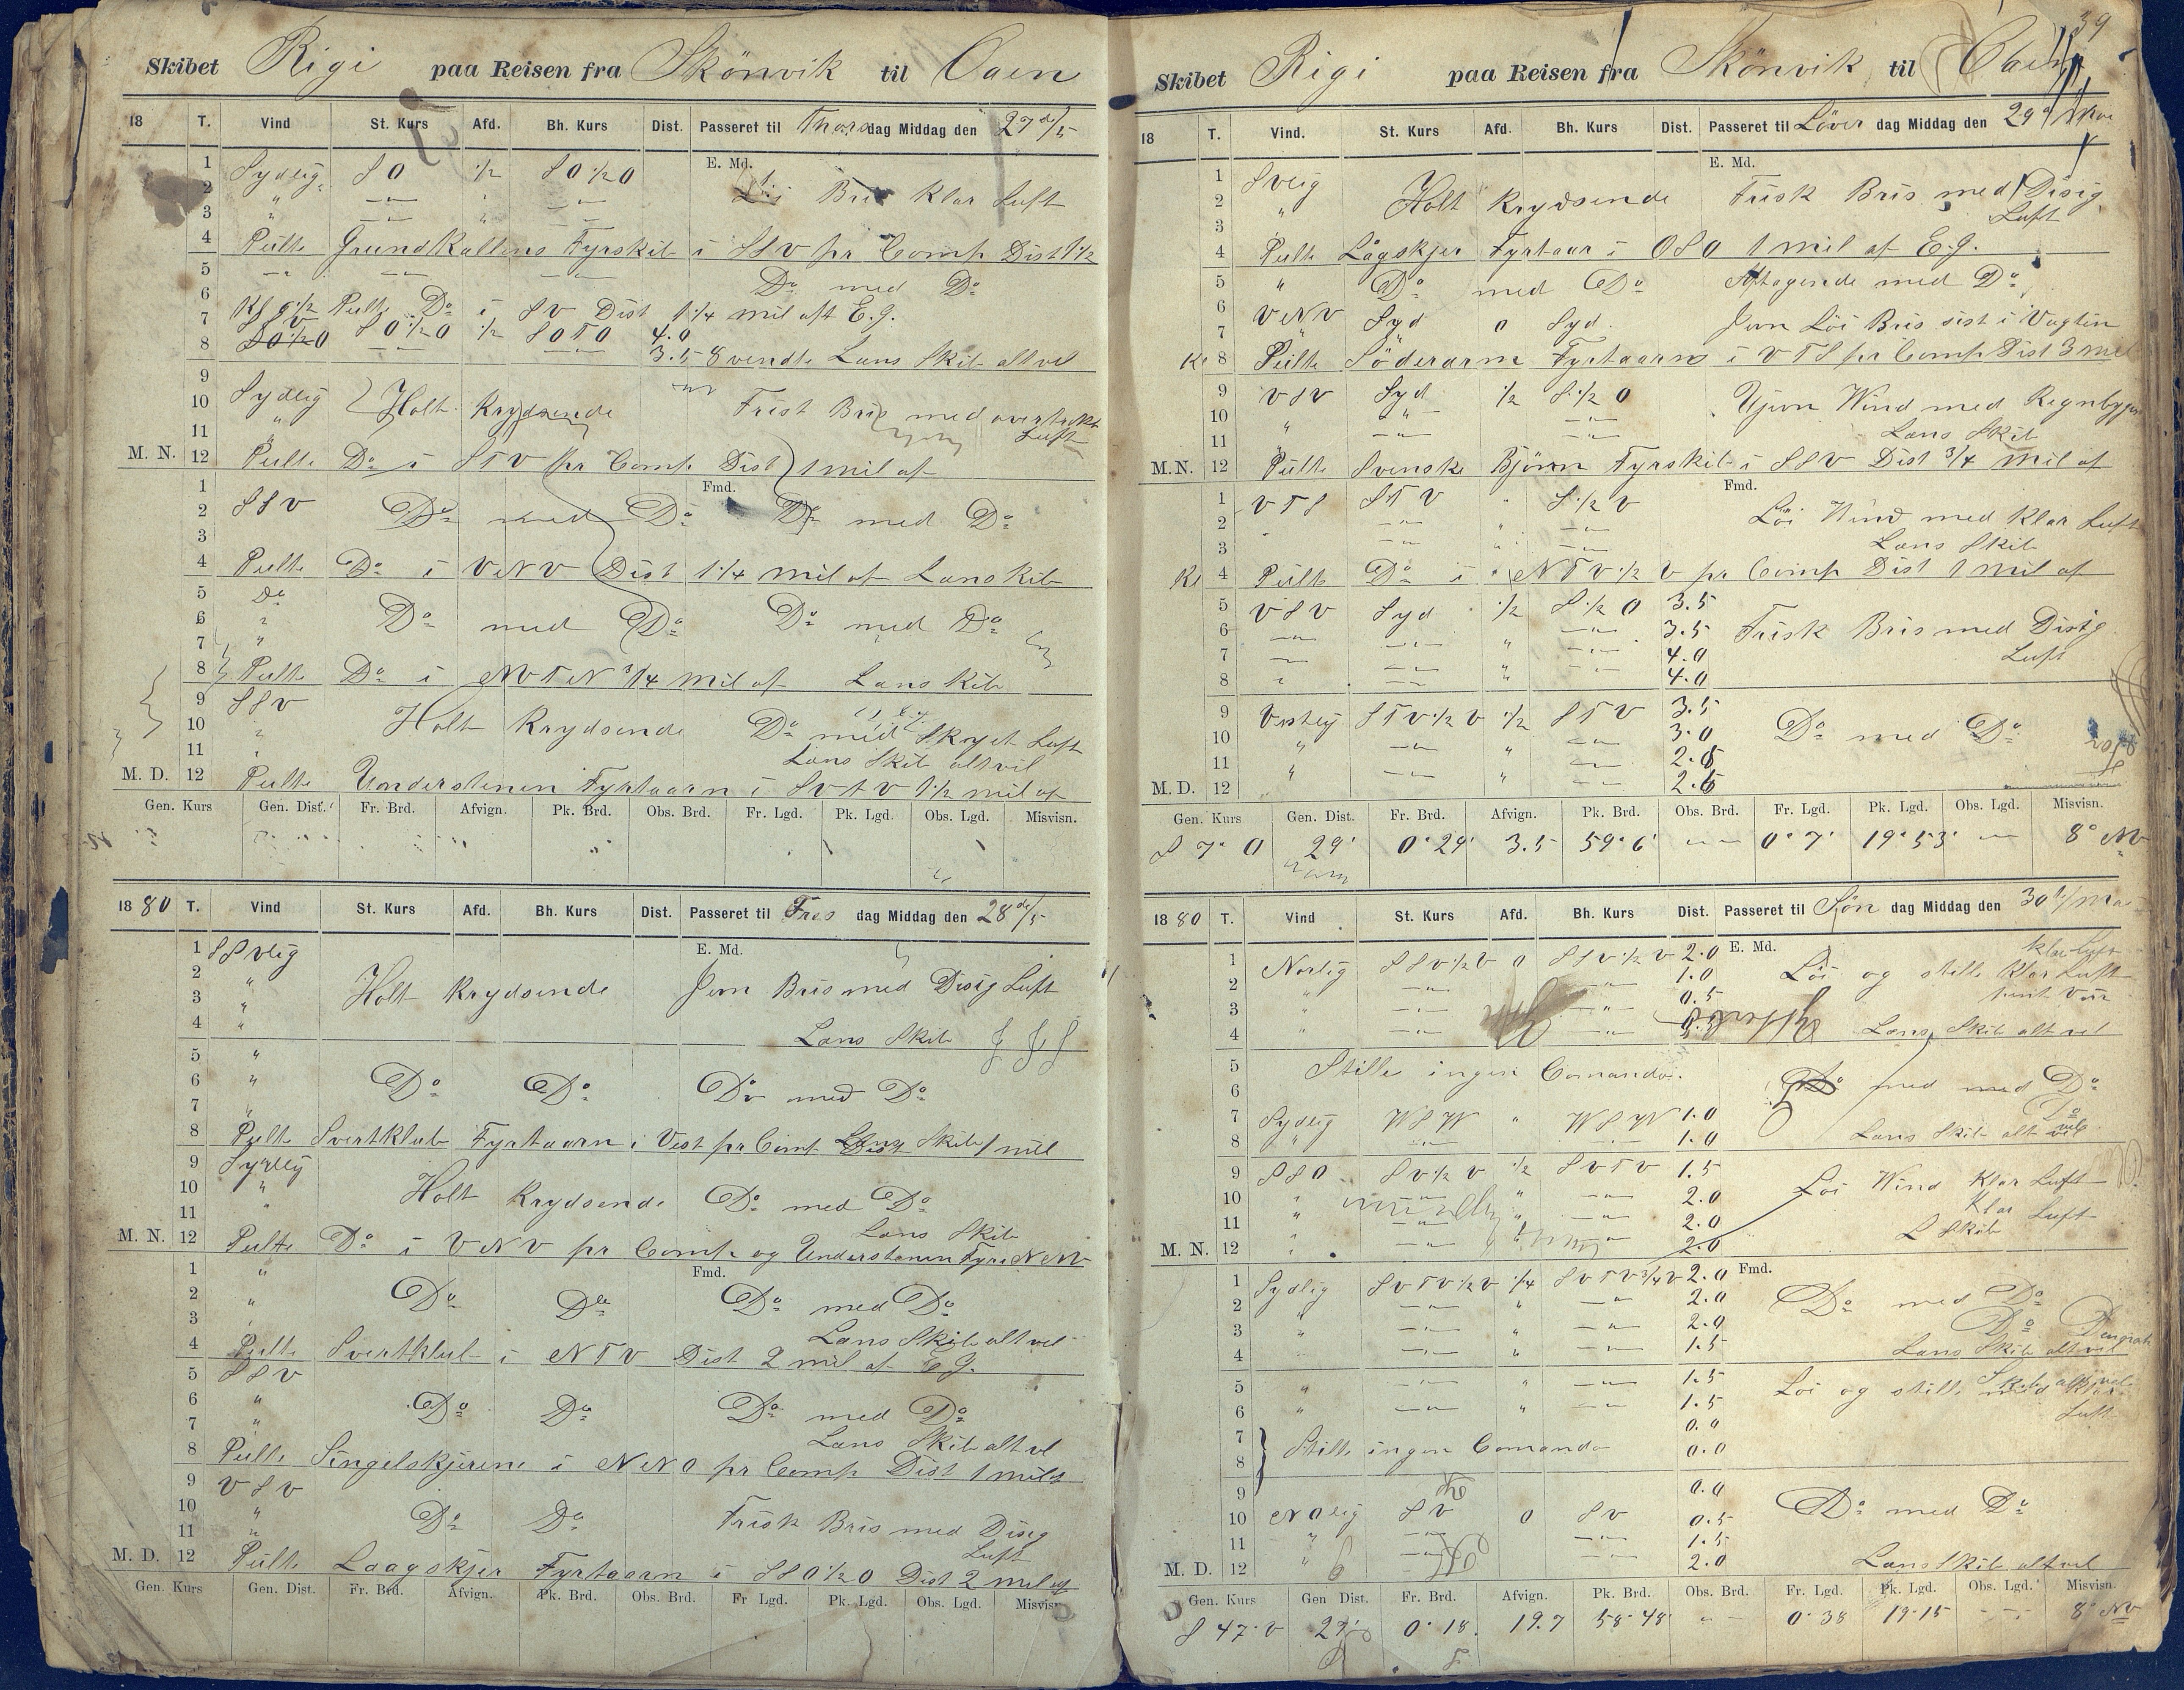 Skibet Rigi paa Reisen fra Skönvik til Caen
18 T. Vind St. Kurs Afd. Bh. Kurs Dist. Passeret til Thorsdag Middag den 27de/5
1 Sydlig S O 1/2 S O 1/2 O E. Md.
2 " — " — " — " — Bris Klar Luft
3 " — " — " — " —
4 Peilte Grundkallens Fyrskib i SSV pr Comp Dist 1 1/2
5 — " — — " — — " — Do med Do
6 Kl 6 1/2 Peilte Do i SV Dist 1 1/4 mil aft E.g.
7 S O 1/2 O S O 1/2 O 1/2 S O T O 4.0
8 — " — — " — 3.5 8 vendte Lans Skib alt vel
9 Sydlig
10 " Holt Krydsende Frisk Bris med overtrekt
11 " Luft
M. N. 12 Peilte Do i S T V pr Comp Dist 1 mil af
1 Fmd.
2 SSV Do med Do Do med Do
3
4 Peilte Do i VNV Dist 1 1/4 mil af Lanskib
5 Do
6 " Do med Do Do med Do
7 "
8 Peilte Do i NV T N 3/4 mil af Lanskib
9 SSV
10 " Holt Krydsende Do med Skyet Luft
11 " Lans Skib altvel
M. D. 12 Peilte Understenen Fyrtaarn i SV t V 1 1/2 mil af
Gen. Kurs Gen. Dist. Fr. Brd. Afvign. Pk. Brd. Obs. Brd. Fr. Lgd. Pk. Lgd. Obs. Lgd. Misvisn.
1880 T. Vind St. Kurs Afd. Bh. Kurs Dist. Passeret til Fredag Middag den 28de/5
1 SSVlig E. Md.
2 "
3 " Holt Krydsende Jevn Bris med Disig Luft
4 " Lans Skib
5 "
6 " Do Do Do med Do
7 "
8 Peilte Svertklub Fyrtaarn i Vest pr Comp Skib 1 mil
9 Sydlig
10 " Holt Krydsende Do med Do
11 " Lans Skib
M. N. 12 Peilte Do i VNV pr Comp og Understenen Fyr i NNV
1 " Fmd.
2 " Do Do Do med Do
3 "
4 Peilte Svertklub i N T V Dist 2 mil af E.g. Lans Skib alt vel
5 SSV
6 " Do Do Do med Do
7 " Lans Skib alt vel
8 Peilte Singelskjerene i NNO pr Comp Dist 1 mil af
9 VSV
10 " Do Do Frisk Bris med Disig
11 " Luft
M. D. 12 Peilte Laagskjer Fyrtaarn i SSO 1/2 O Dist 2 mil af
Gen. Kurs Gen. Dist. Fr. Brd. Afvign. Pk. Brd. Obs. Brd. Fr Lgd. Pk. Lgd. Obs. Lgd. Misvisn.
39
Skibet Rigi paa Reisen fra Skönvik til Caen
18 T. Vind. St. Kurs Afd. Bh. Kurs Dist. Passeret til Löver dag Middag den 29de/Mai
1 SVlig E. Md.
2 " Holt Krydsende Frisk Bris med Disig
3 Luft
4 Peilte Lågskjer Fyrtaar i OSO 1 mil af E.g.
5 " Do med Do Aftagende med Do
6 VNV Syd 0 Syd. Jevn Löi Bris sist i Vagten
7 "
Kl 8 Peilte Söderarm Fyrtaarn i V T S pr Comp Dist 3 mil
9 VSV Syd 1/2 S 1/2 O Ujevn Wind med Regnbyger
10 " — " — — " —
11 " — " — — " — Lans Skib
M.N. 12 Peilte Svenske Björn Fyrskib i SSV Dist 3/4 Mil af
1 V T S S T V " S 1/2 V Fmd.
2 — " — " — " — Löi Wind med Klar Luft
3 " — " — " — " — Lans Skib
Kl 4 Peilte Do i N T V 1/2 V pr Comp Dist 1 Mil af
5 VSV Syd 1/2 S 1/2 O 3.5
6 — " — — " — — " — 3.5 Frisk Bris med Disig
7 — " — — " — " — " — 4.0 Luft
8 " — " — " — " — 4.0
9 Vestlig S T V 1/2 V 1/2 S T V 3.5
10 " — " — " — " — 3.0 Do med Do
11 " — " — " — " — 2.5
M. D. 12 " — " — " — " — 2.5
Gen. Kurs Gen. Dist. Fr. Brd. Afvign. Pk. Brd. Obs. Brd. Fr. Lgd. Pk. Lgd. Obs. Lgd. Misvisn.
S 7° O 29' 0° 29' 3.5 59° 6' — " — 0° 7' 19° 53' — " — 8° NV
1880 T. Vind St. Kurs Afd. Bh. Kurs Dist. Passeret til Søn dag Middag den 30te/Mai
1 Norlig SSV 1/2 V 0 SSV 1/2 V 2.0 E. Md.
2 " — " — — " — 1.0 Löi og stille Klar Luft
3 " — " — " — " — 0.5
4 " — " — — " — Lans Skib alt vel
5 Stille ingen Comando.
6 med med Do
7 Sydlig WSW " WSW 1.0
8 " — " — — " — 1.0 Lans Skib alt vel
9 SSO SV 1/2 V 1/2 SV T V 1.5
10 " — " — " — " — 2.0 Löi Wind Klar Luft
11 " — " — " — " — 2.0 Klar Luft
M. N. 12 " — " — — " — 2.0 L Skib
1 Sydlig SV T V 1/2 V 1/4 SV T V 3/4 V 2.0 Fmd.
2 " — " — " — " — 2.0 Do med Do
3 " — " — " — " — 2.0 Do
4 — " — " — " — 1.5 Lans Skib alt vel
5 " — " — " — " — 1.5 Löi og stille med Klar
6 " — " — " — " — 1.5 Luft
7 0.0
8 Stille ingen Comando 0.0
9 0.0
10 NOlig SV 0 SV 0.5 Do med Do
11 " — " — — " — 1.5
M. D. 12 " — " — — " — 2.0 Lans Skib alt vel
Gen. Kurs Gen Dist. Fr. Brd. Afvign. Pk. Brd. Obs. Brd. Fr. Lgd. Pk. Lgd. Obs. Lgd. Misvisn.
S 47° V 27' 0° 18' 19.7 58° 48' — " — 0° 38 19° 15 — " — 8° NV